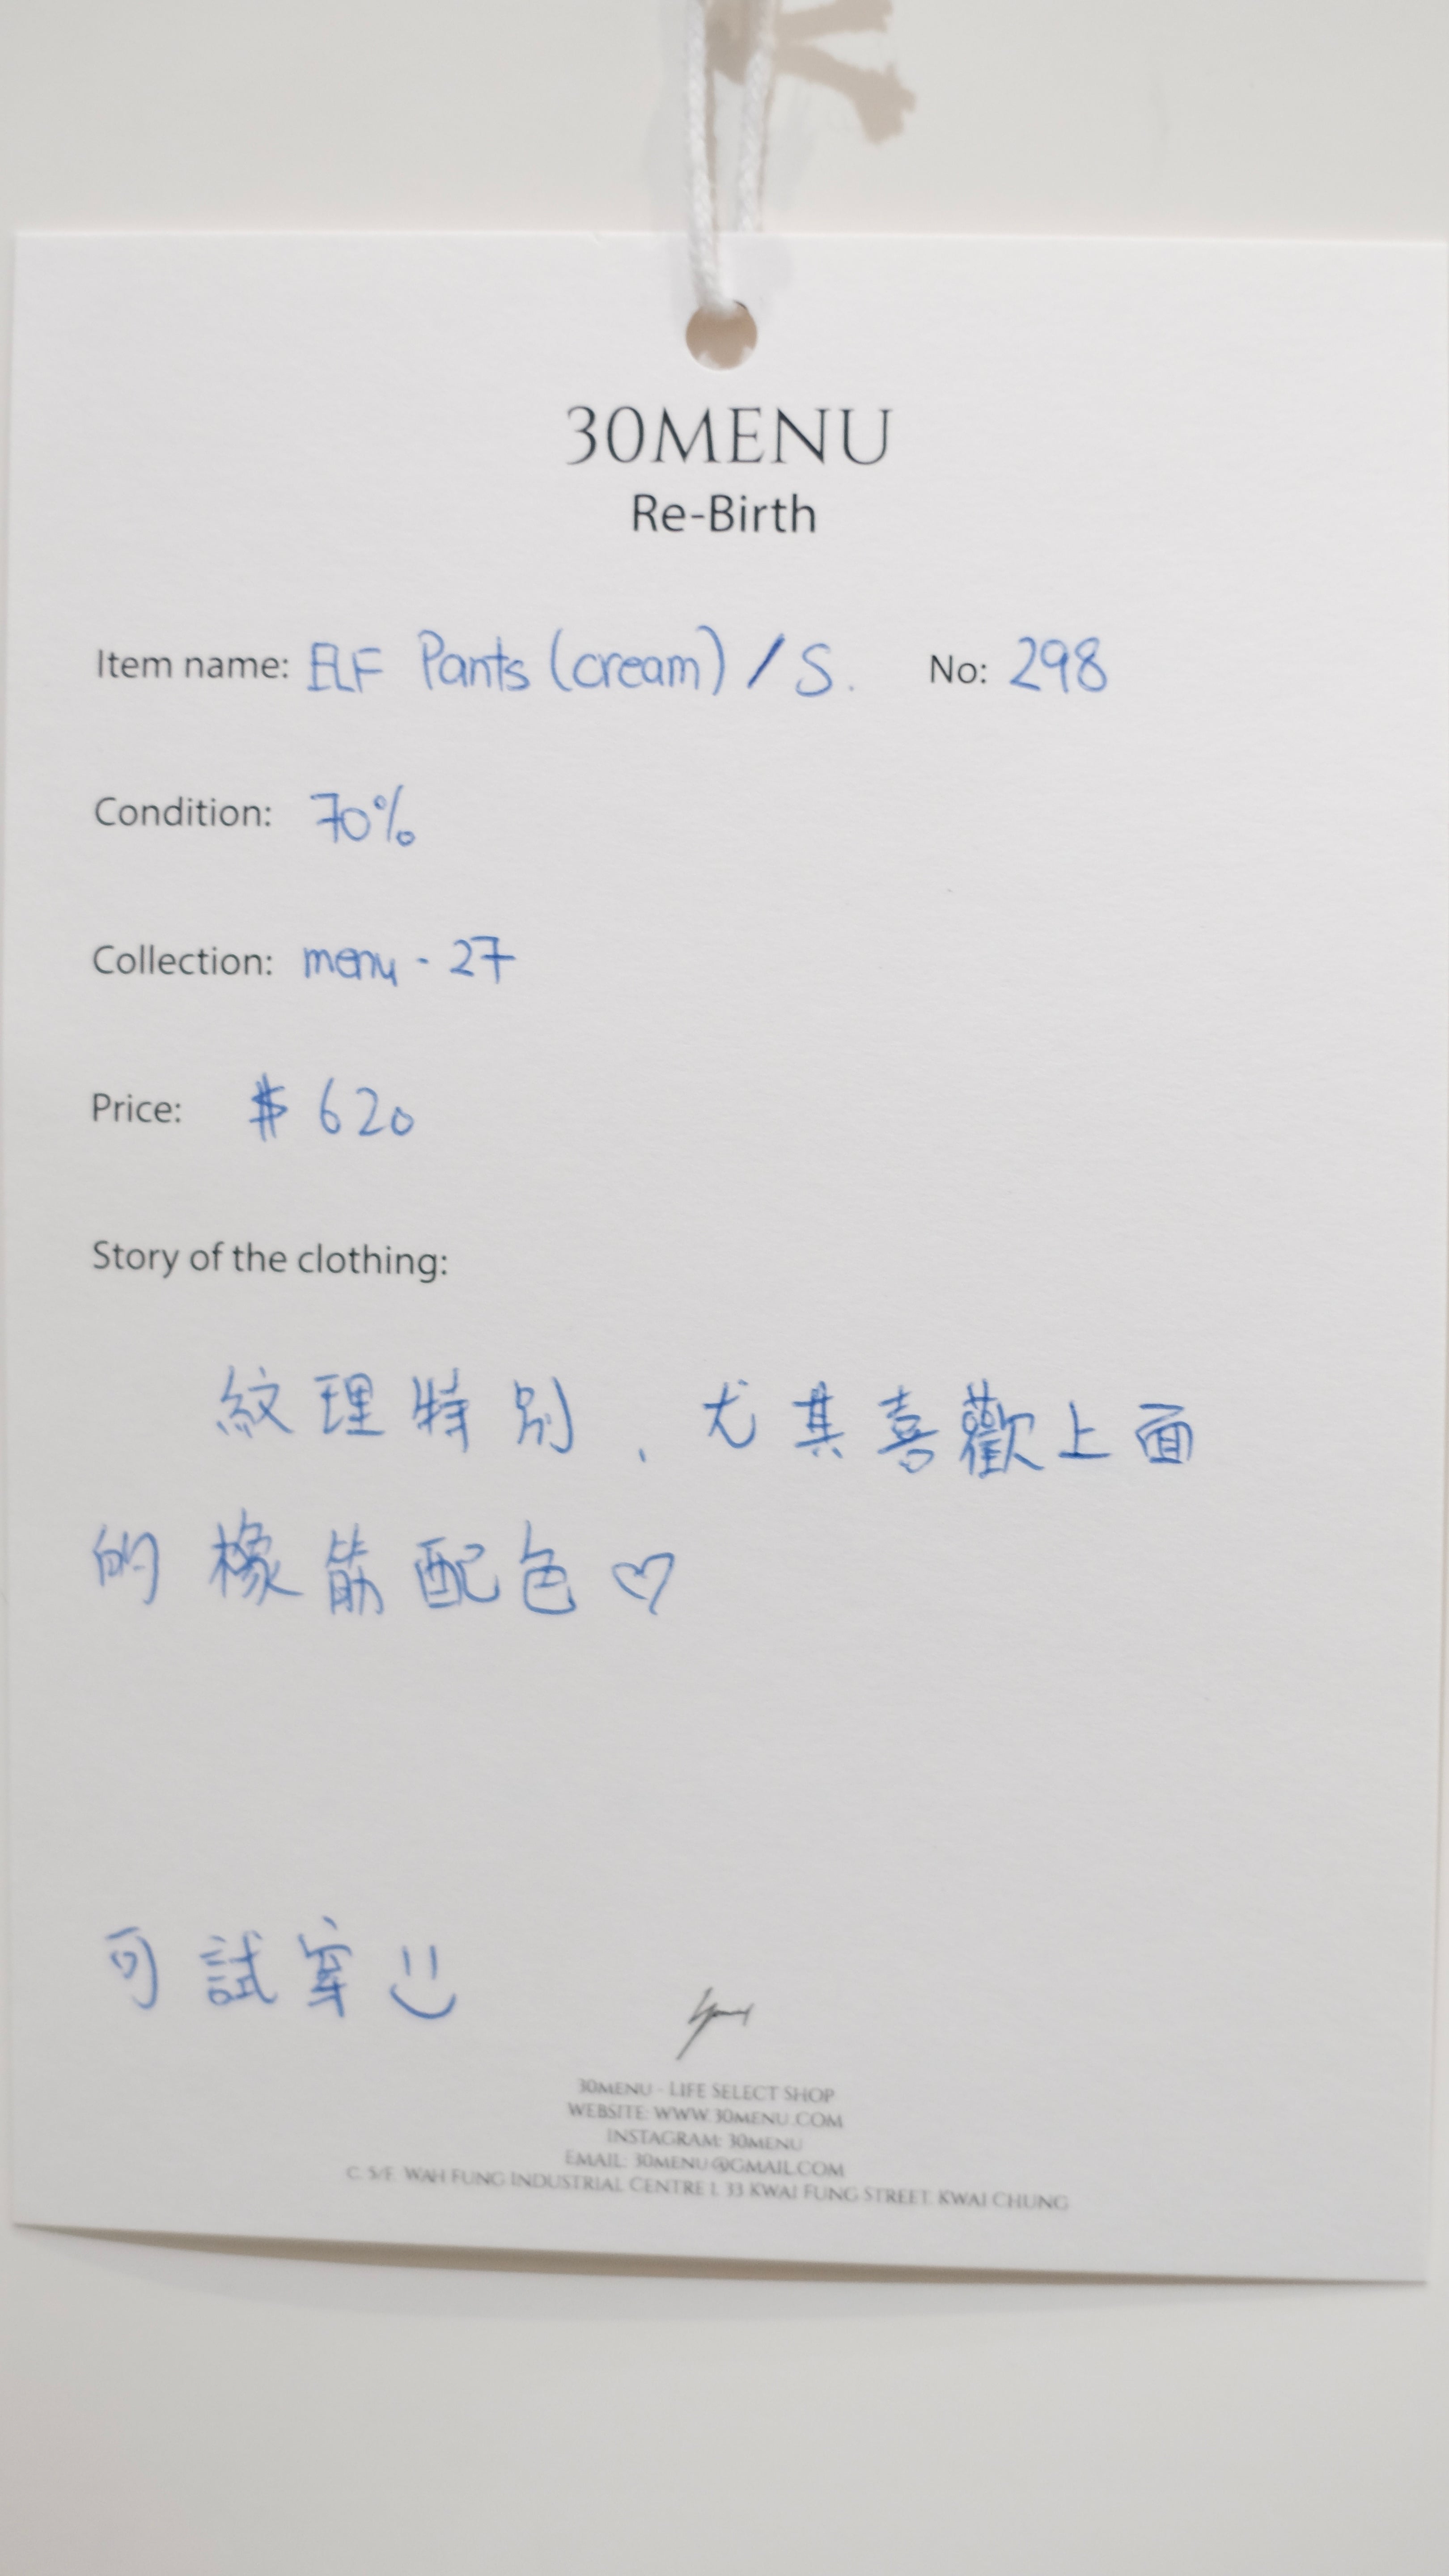 30MENU
Re-Birth
Item name: ELF Pants (cream) / S. No: 298
Condition: 70%
Collection: menu - 27
Price: $ 620
Story of the clothing:
紋理特別、尤其喜歡上面
的橡筋配色♡
可試穿
30MENU - LIFE SELECT SHOP
WEBSITE: WWW.30MENU.COM
INSTAGRAM: 30MENU
EMAIL: 30MENU@GMAIL.COM
C, 5/F, WAH FUNG INDUSTRIAL CENTRE I, 33 KWAI FUNG STREET, KWAI CHUNG